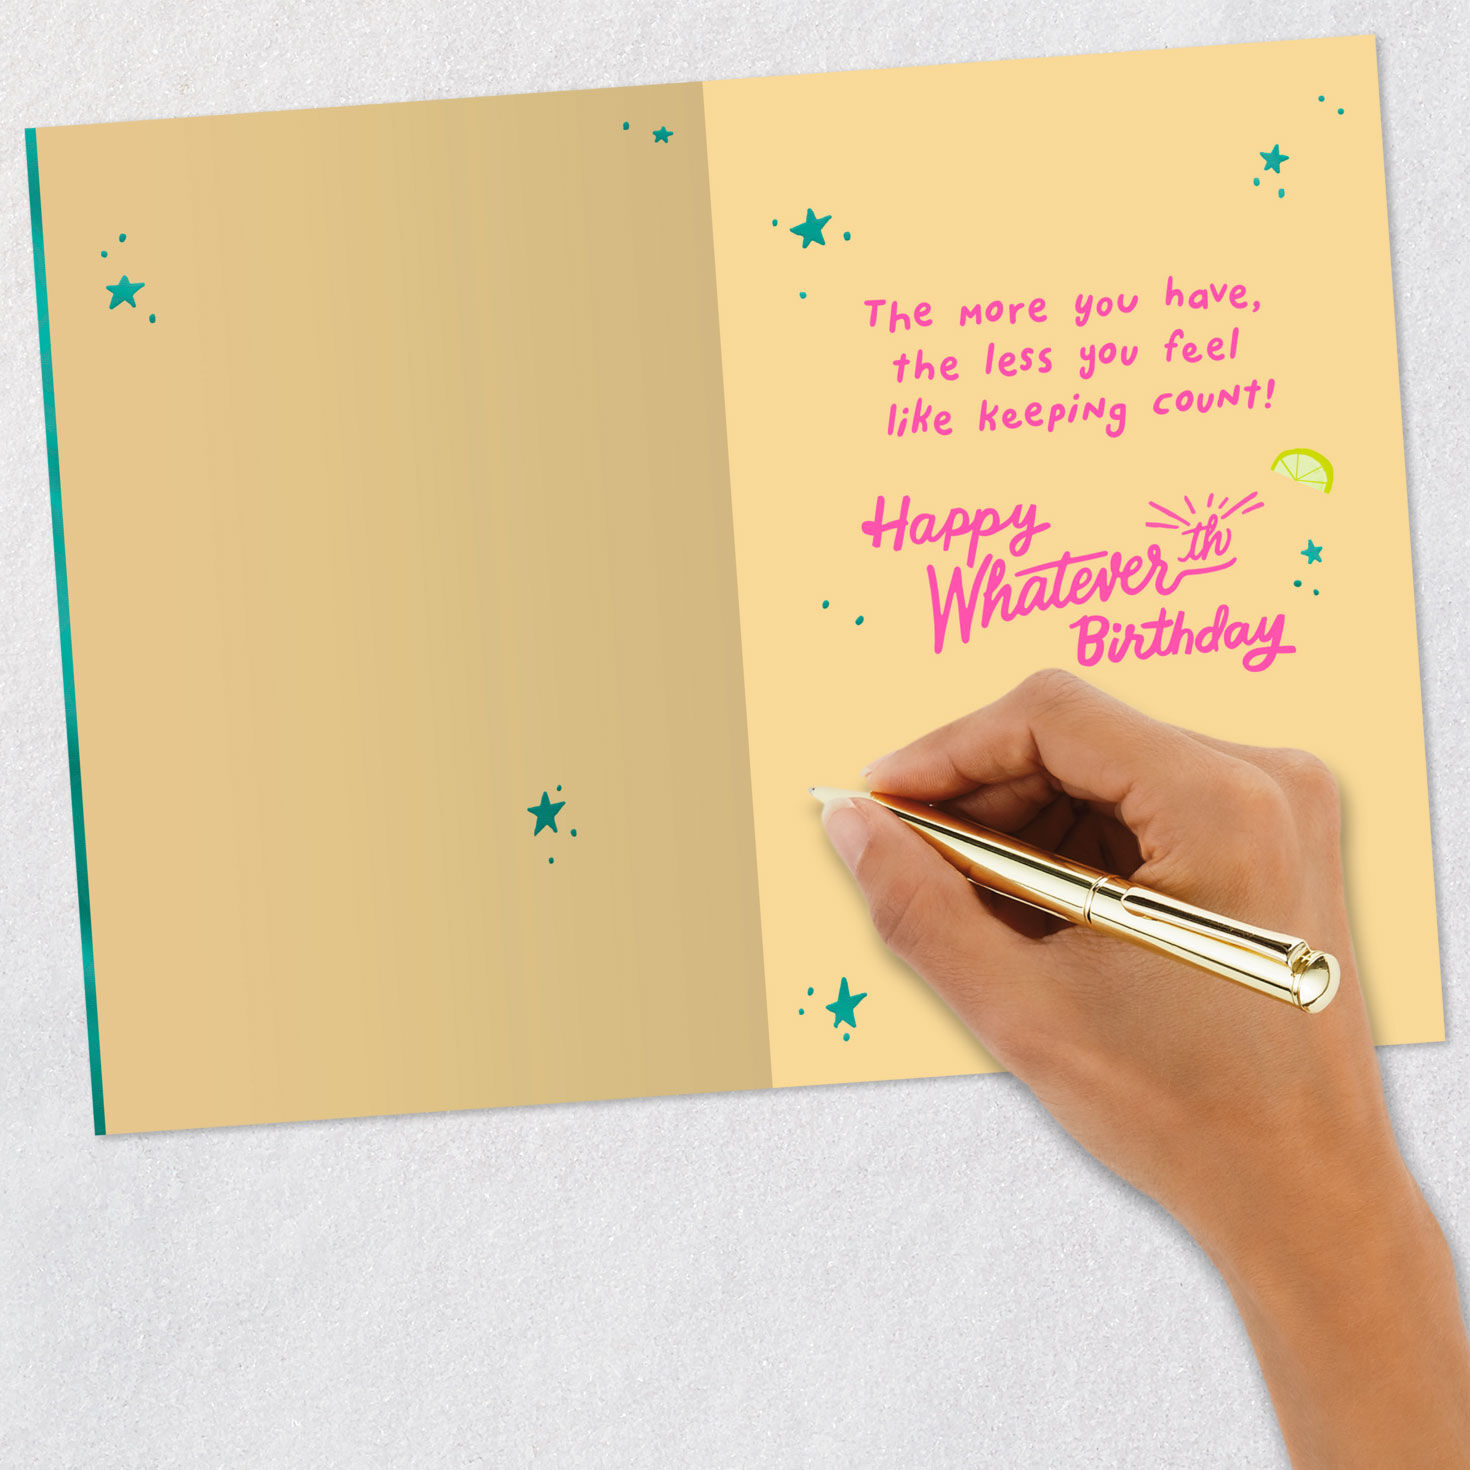 The more you have,
the less you feel
like keeping count!
Happy
Whateverth
Birthday